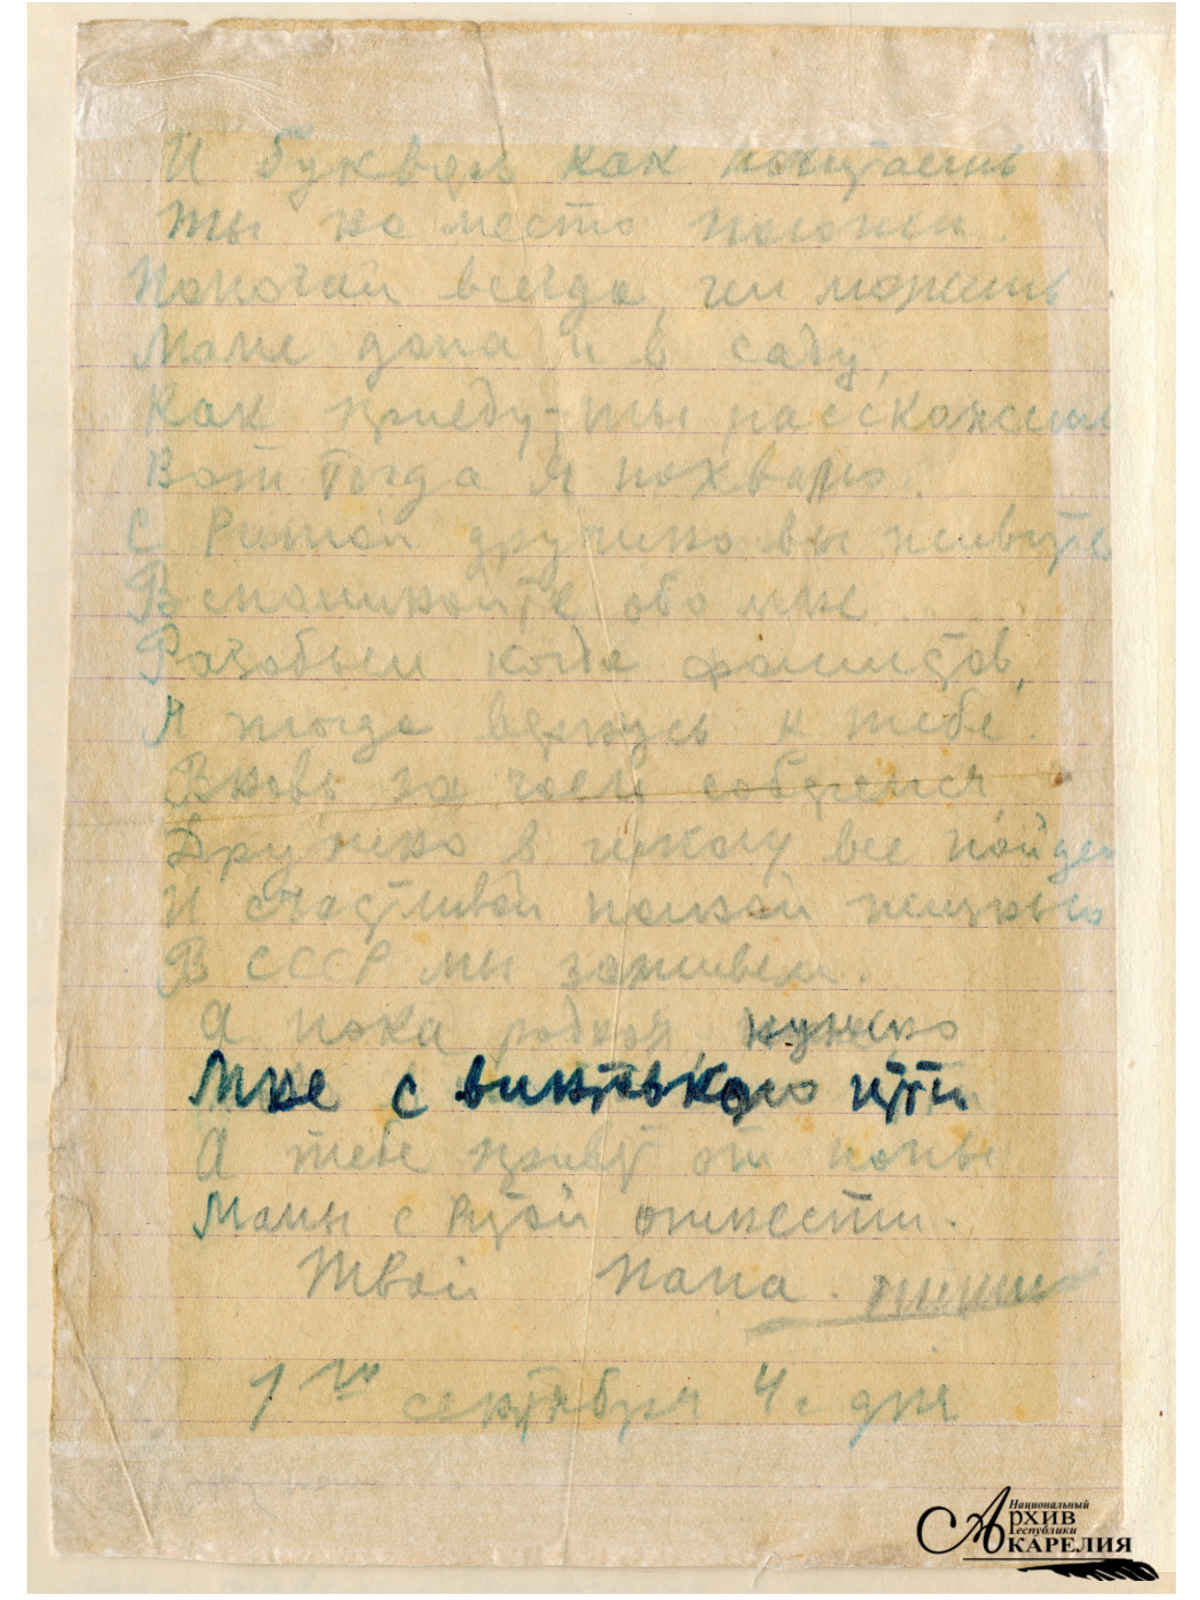 И букварь как почитаешь
Ты на место положи.
Помогай всегда, чем можешь
Маме дома и в саду,
Как приеду, ты расскажешь
Вот тогда я похвалю.
С Ритой дружно вы живите
Вспоминайте обо мне
Разобьем когда фашистов,
Я тогда вернусь к тебе.
Вновь за чаем соберемся
Дружно в школу все пойдем
И счастливой полной жизнью
В СССР мы заживем.
А пока родной нужно
Мне с винтовкою идти
А тебе привет от папы
Мамы с Ритой отнести.
Твой Папа.
1го сентября 4 ч дня
Национальный
Архив
Республики
Карелия